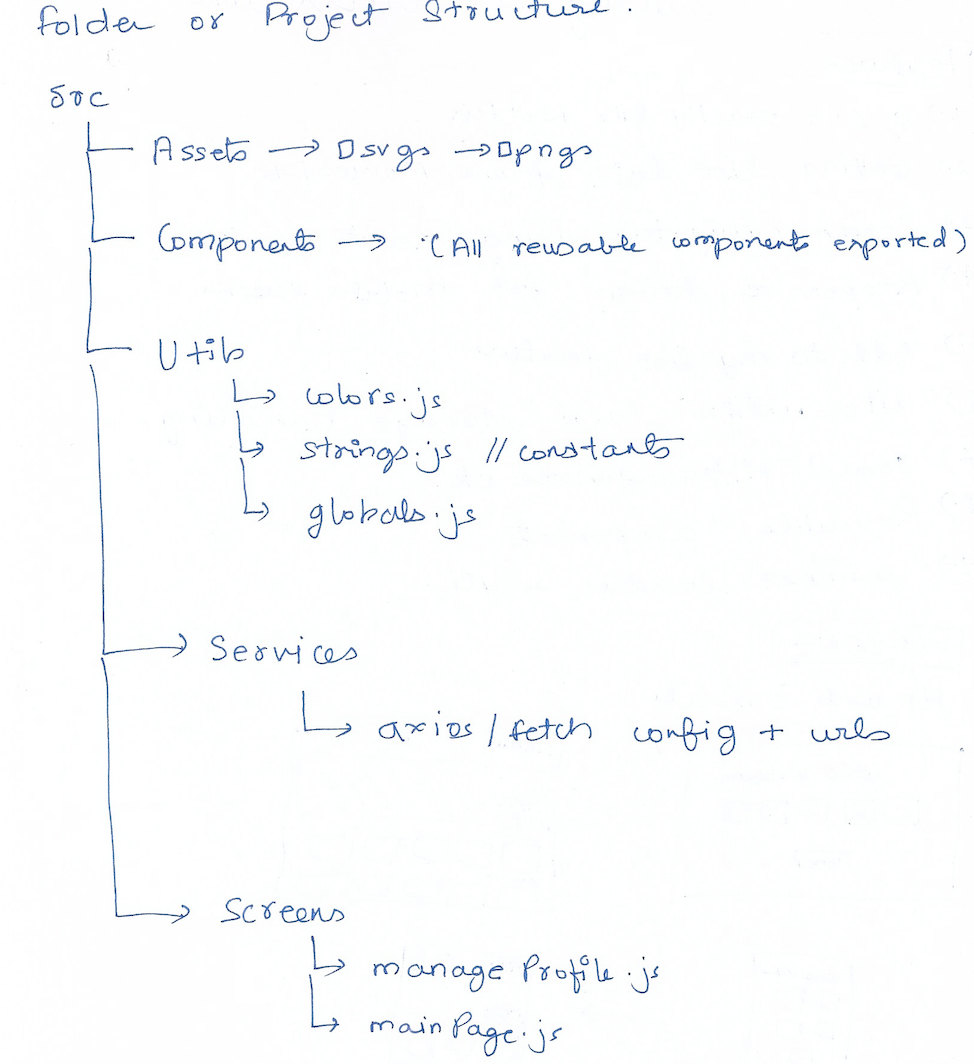 folder or Project Structure.
Src
Assets → svgs → pngs
Components → (All reusable components exported)
Utils
colors.js
strings.js // constants
globals.js
Services
axios / fetch config + urls
Screens
manage Profile.js
main Page.js